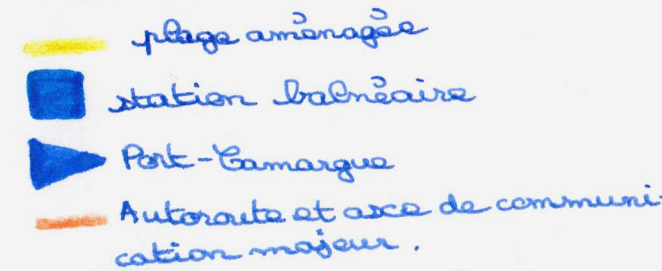 plage aménagée
station balnéaire
Port-Camargue
Autoroute et axe de communi-
cation majeur.